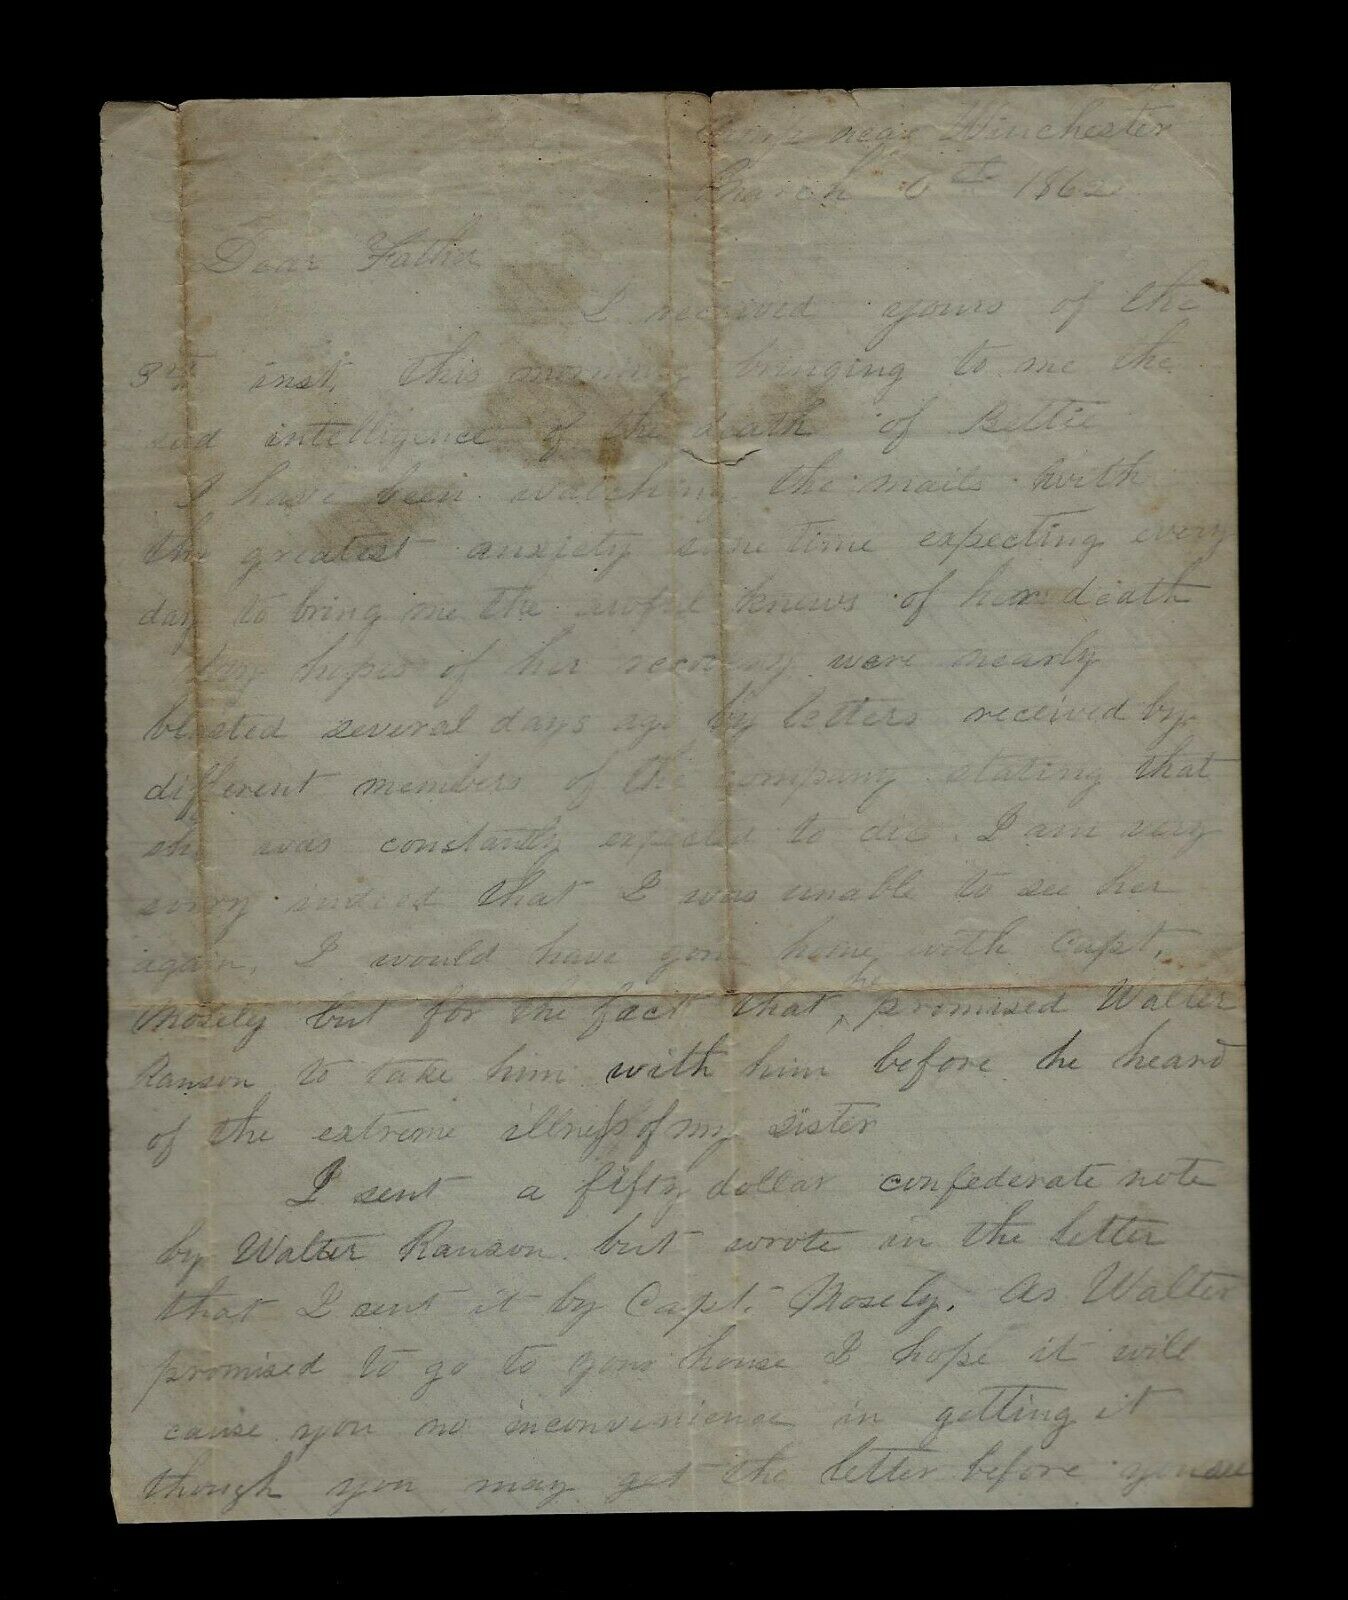 Camp near Winchester
March 6th 1862
Dear Father
I received yours of the
3rd inst, this morning bringing to me the
sad intelligence of the death of Bettie
I have been watching the mails with
the greatest anxiety some time expecting every
day to bring me the awful knews of her death
my hopes of her recovery were nearly
blasted several days ago by letters received by
different members of the company stating that
she was constantly expected to die. I am very
sorry indeed that I was unable to see her
again. I would have gone home with Capt.
Mosely but for the fact that he promised Walter
Ranson to take him with him before he heard
of the extreme illness of my sister
I sent a fifty dollar confederate note
by Walter Ranson but wrote in the letter
that I sent it by Capt. Mosely. As Walter
promised to go to your house I hope it will
cause you no inconvenience in getting it
though you may get the letter before you see